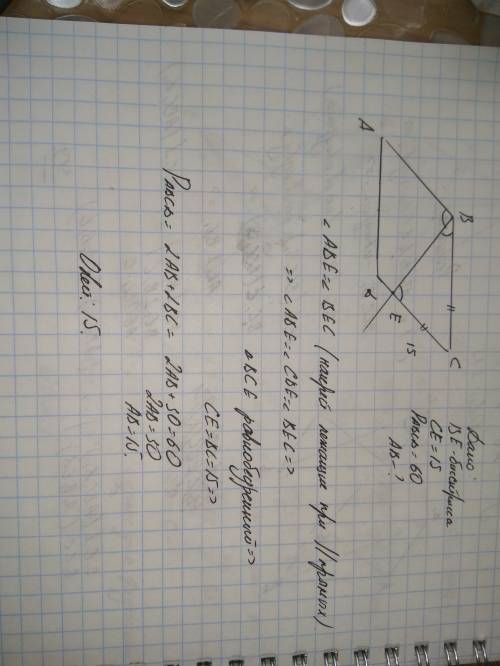 Дано:
BE - биссектриса
CE = 15
Pabcd = 60
AB - ?
A
B
C
E
15
∠ABE = ∠BEC (накрест лежащие при || прямых)
=> ∠ABE = ∠CBE = ∠BEC =>
△BCE равнобедренный =>
CE = BC = 15 =>
Pabcd = 2AB + 2BC = 2AB + 30 = 60
2AB = 30
AB = 15.
Ответ: 15.